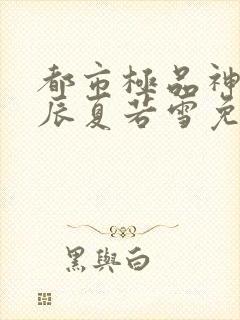 都市極品神
辰夏若雪免
黑與白